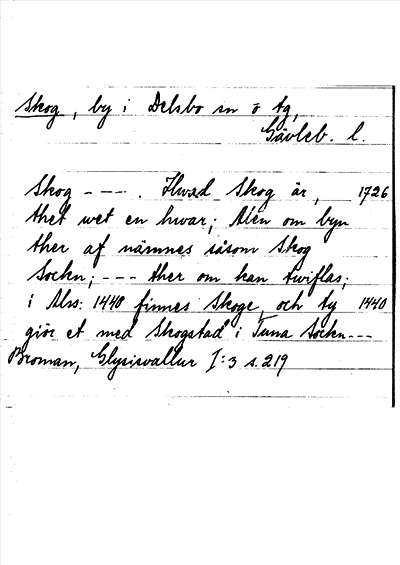 Skog, by i Delsbo sn o tg,
Gävleb. l.
Skog - - - . Hwad Skog är, 1726
thet wet en hwar; Men om byn
ther af nämnes såsom Skog
Sockn; - - - ther om kan twiflas;
i Alss: 1440 finnes Skoge, och ty 1440
giör et med Skogstad i Tuna Sockn - - -
Broman, Glysisvallur I:3 s. 219